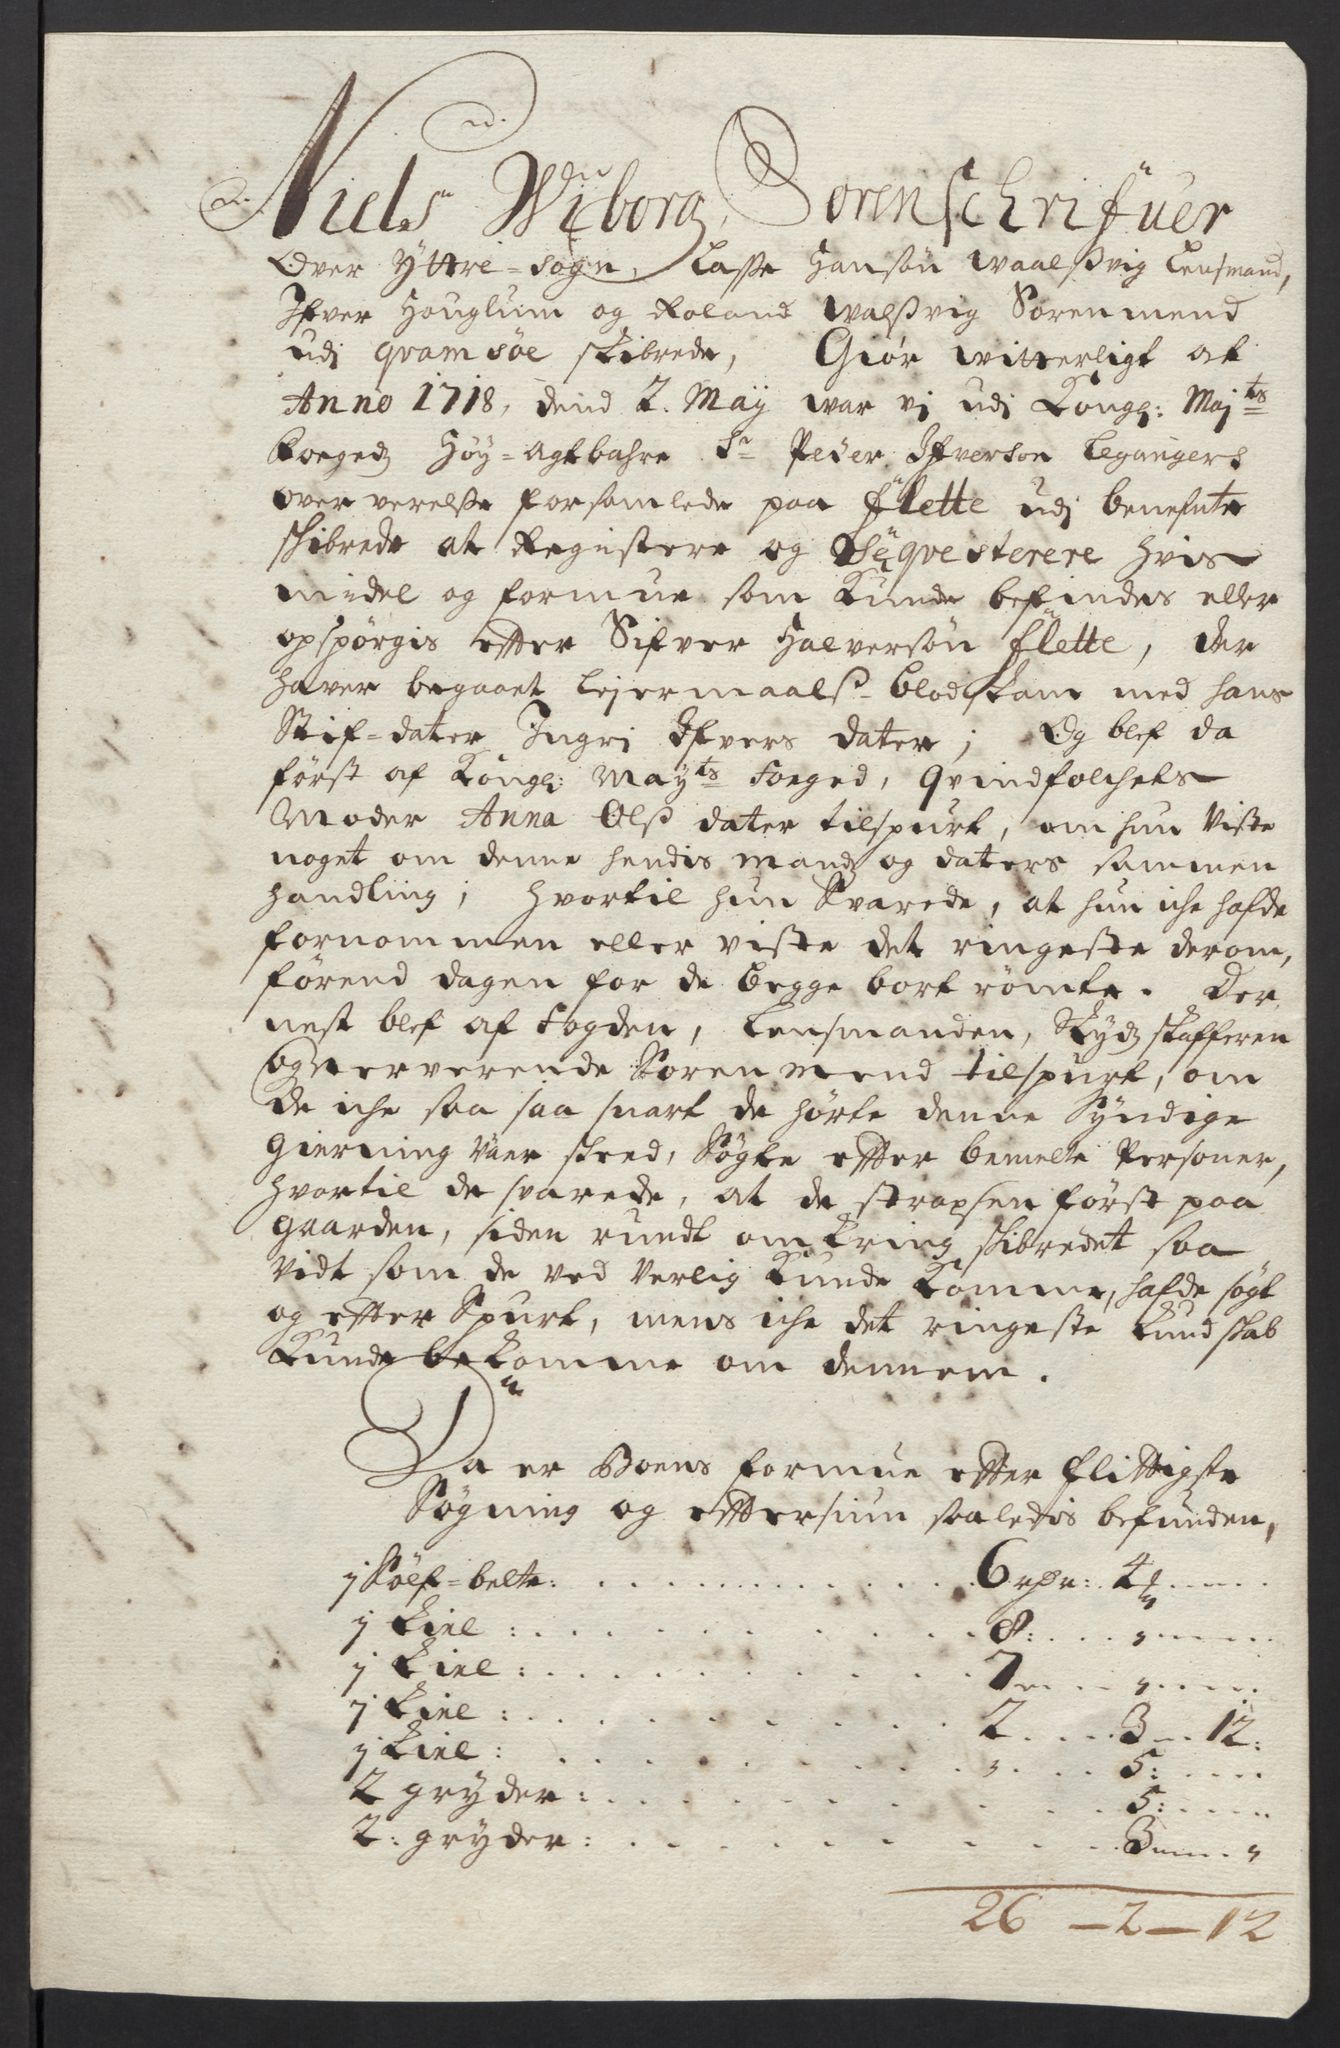 Niels Wiborg, Sorenschrifuer
Over Yttre-Sogn, Lasse Hansøn Waalsvig Lensmand,
Ifver Houglum og Roland Walsvig Sorenmend
udj Qvamsöe skibrede, Giör witterligt at
Anno 1718, dend 2. Maÿ war vj udj Kongl: Majts
Foegedz Høy-agtbahre Sr Peder Ifversøn Leganger
oververelse forsamlede paa flette udj benefnte
skibrede at Registere og Seqvesterere hvis
midel og formue som Kunde befindes eller
opspörgis efter Sifver Halversön flette, der
haver begaaet Lejermaals-blodskam med hans
Stif-dater Ingri Ifvers dater; Og blef da
först af Kongl: Mayts Foeged, qvindfolchets
Moder Anna Ols dater tilspurt, om hun Viste
noget om denne hendis mandz og daters sammen
handling; hvortil hun Svarede, at hun iche hafde
fornommen eller viste det ringeste derom,
förend dagen for de begge bort römte. Der
nest blef af fogden, Lensmanden, Skydzskafferen
og nerverende Sorenmend tilspurt, om
de iche saa saa snart de hörte denne Syndige
Gierning Vaer skeed, Søgte efter bemelte Personer,
hvortil de svarede, at de strapsen först paa
gaarden, siden rundt omkring skibredet saa
Vidt som de ved Verlig Kunde Komme, hafde sögt
og efter Spurt, mens iche det ringeste kundskab
Kunde bekomme om dennem.
Da er Boens formue efter flittigste
Søgning og eftersiun saaledis befunden,
j Sölf-belte: 6 rdr: 4 ß
j Kiel: 8: "
j Kiel: 7 "
j Kiel: 2 3 12:
j Kiel: " 5:
2 gryder: 5:
2: gryder: 3 "
26 – 2 – 12